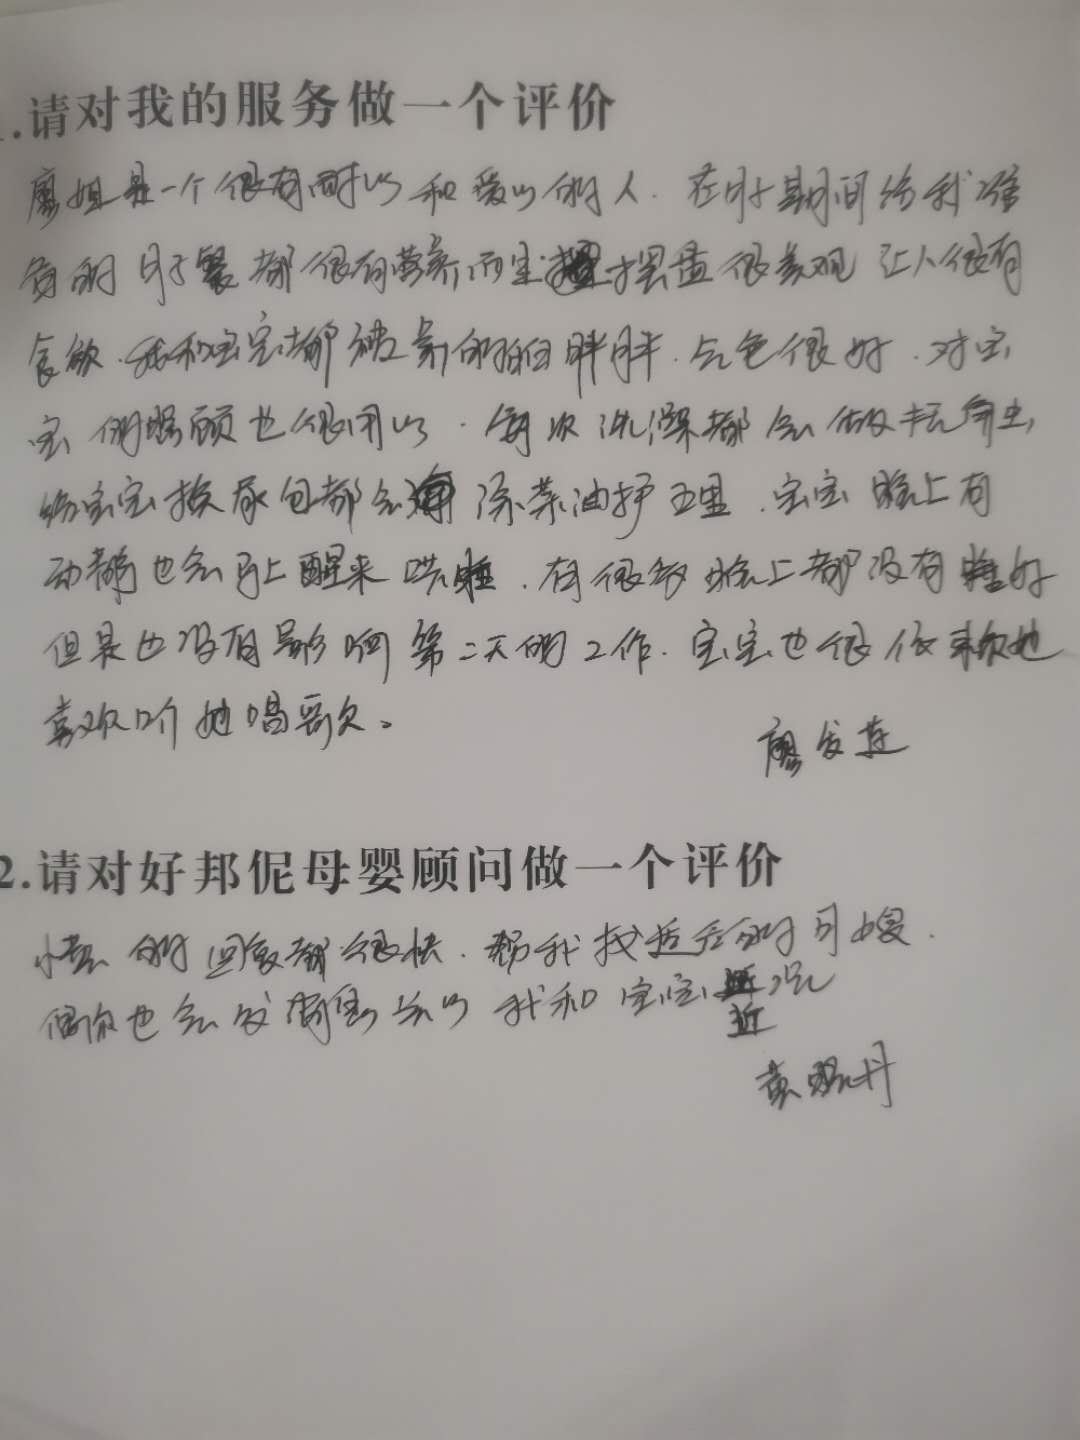 1.请对我的服务做一个评价
廖姐是一个很有耐心和爱心的人.在月子期间给我准
备的月子餐都很有营养而且摆盘很美观 让人很有
食欲.我和宝宝都被养的白白胖胖.气色很好.对宝
宝的照顾也很用心.每次洗澡都会做抚
给宝宝换尿包都会涂茶油护理.宝宝晚上有
动静也会马上醒来哄睡.有很多晚上都没有睡好
但是也没有影响第二天的工作.宝宝也很依赖她
喜欢听她唱歌。
廖发莲
2.请对好邦伲母婴顾问做一个评价
小黄的回复都很快.帮我找适合的月嫂.
偶尔也会发信息关心我和宝宝近况
黄丹